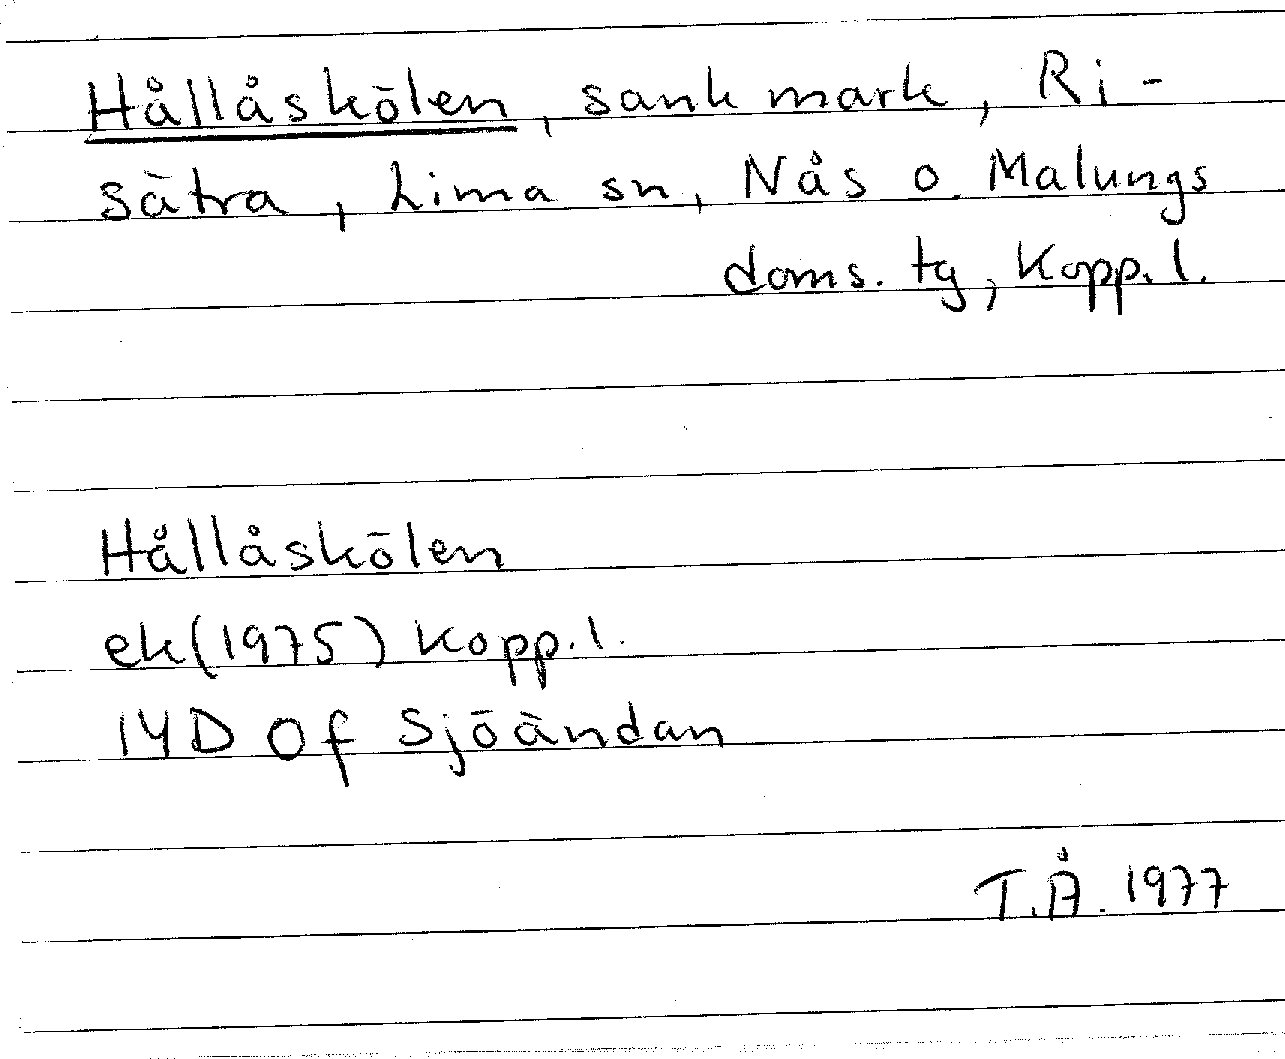 Hållåskölen, sank mark, Ri-
sätra, Lima sn, Nås o. Malungs
doms. tg, Kopp. l.
Hållåskölen
ek(1975) Kopp. l.
14D 0f Sjöändan
T.Å. 1977